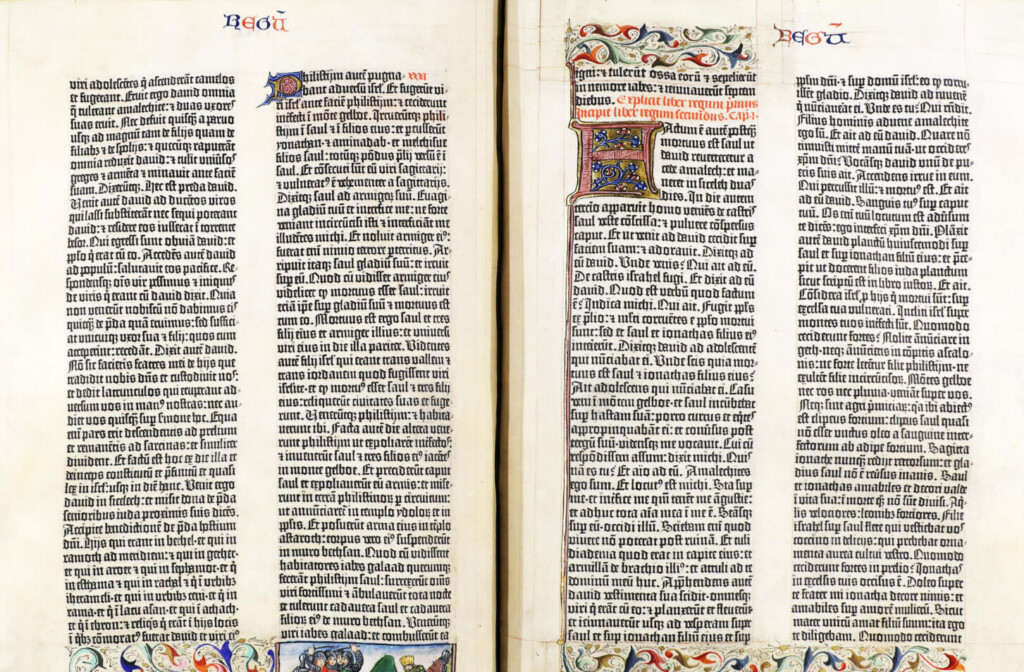 REGŪ
viri adolescētes q̄ ascenderant camelos
et fugerant. Eruit ergo david omnia
q̄ tulerant amalechite: ⁊ duas uxores
suas eruit. Nec defuit quisq̄ a parvo
usq; ad magnū tam de filijs quam de
filiabꝫ ⁊ de spolijs: ⁊ quecūq; rapuerāt
omnia reduxit david: ⁊ tulit univsos
greges ⁊ armēta ⁊ minavit ante faciē
suam. Dixerūtq;. Hec est preda david.
Venit autē david ad ducētos viros
qui lassi substiterāt nec sequi poterant
david: ⁊ residere eos iusserat ī torrente
besor. Qui egressi sunt obviā david: et
pplo q̄ erat cū eo. Accedēs autē david
ad populū: salutavit eos pacifice. Re-
spondensq; oīs vir pessimus ⁊ iniquus
de viris q̄ erant cū david dixit. Quia
non venerūt nobiscū nō dabimus eis
quicq̄ de p̄da quā eruimus: sed suffici-
at unicuiq; uxor sua ⁊ filij: quos cum
acceperint: recedāt. Dixit autē david.
Nō sic facietis fratres mei de hijs que
tradidit nobis dn̄s et custodivit nos:
et dedit latrunculos qui eruperant ad-
versum vos in manꝰ nostras: nec au-
diet vos quisq̄ sup sermone hoc. Equa
enī pars erit descendentis ad prelium
et remanētis ad sarcinas: et similiter
divident. Et factū est hoc ex die illa et
deinceps cōstitutū et p̄finitū et quasi
lex in isrl̄: usq; in diē hanc. Venit ergo
david in sicelech: et misit dona de p̄da
senioribus iuda proximis suis dicēs.
Accipite benedictionē de p̄da hostium
dn̄i. Hijs qui erant in bethel-et qui in
ramoth ad meridiem: ⁊ qui in gether-
et qui in aroer ⁊ qui in sephamor-et q̄
in esthama ⁊ qui in rachal ⁊ q̄ ī urbibꝫ
iherameli-et qui in urbibꝫ ceni-et q̄ in
rama-et q̄ ī lacu asan-et qui ī achach-
et q̄ ī ebron: ⁊ reliq̄s q̄ erāt ī hijs locis
ī q̄bꝫ cōmoratꝰ fuerat david et viri eiꝰ
Philistijm autē pugna- xxxi
bant adversū isrl̄. Et fugerūt vi-
ri isrl̄ ante faciē philistijm: ⁊ ceciderunt
infecti ī mōte gelboe. Irrueruntq; phili-
stijm ī saul ⁊ ī filios eius: et pcusserunt
ionathan-⁊ aminadab-et melchisue
filios saul: totūq; pōdus p̄lij vsū ē ī
saul. Et cōsecuti sūt eū viri sagittarij:
⁊ vulneratꝰ ē vehemēter a sagittarijs.
Dixitq; saul ad armigerū suū. Evagi-
na gladiū tuū et interfice me: ne forte
veniant incircūcisi isti ⁊ interficiāt me
illudētes michi. Et noluit armiger eiꝰ:
fuerat enī nimio terrore pterritus. Ar-
ripuit itaq; saul gladiū suū: et irruit
sup eū. Quod cū vidisset armiger eius
videlicet qd̄ mortuus esset saul: irruit
etiā ip̄e sup gladiū suū ⁊ mortuus est
cum eo. Mortuus est ergo saul et tres
filij eius et armiger illius: et universi
viri eius in die illa pariter. Videntes
autē filij isrl̄ qui erant trans vallem ⁊
trans iordanem quod fugissent viri
isrl̄ite-et qd̄ mortuus esset saul ⁊ tres filij
eius: reliquerūt civitates suas et fuge-
runt. Veneruntq; philistijm: ⁊ habita-
verunt ibi. Facta autē die altera vene-
runt philistijm ut expoliarēt infectos:
⁊ invenerunt saul ⁊ tres filios ei iacētes
in monte gelboe. Et preciderūt caput
saul et expoliaverūt eū armis: et mise-
runt in terrā philistinoꝝ p circuitum:
ut annunciaret in templo ydoloꝝ et in
pplis. Et posuerūt arma eiꝰ in tēplo
astaroth: corpus vero eiꝰ suspenderūt
in muro bethsan. Quod cū audissent
habitatores iabes galaad quecumq;
fecerāt philistijm saul: surrexerūt om̄s
viri fortissimi ⁊ ābulaverūt tota nocte
et tulerunt cadaver saul et cadavera
filioꝝ eiꝰ de muro bethsan. Veneruntq;
viri iabes galaad: et combusserūt ea
REGŪ
igni: ⁊ tulerūt ossa eorū ⁊ sepelierūt
in nemore iabes: ⁊ ieiunaverūt septem
diebus. Explicit liber regum primus
Incipit liber regum secundus. Cap. i.
Factum ē autē postq̄
mortuus est saul ut
david reverteretur a
cede amalech: et ma-
neret in sicelech duos
dies. In die autem
tercia apparuit homo veniēs de castris
saul veste cōscissa: ⁊ pulvere cōspersus
caput. Et ut venit ad david cecidit sup
faciem suam: ⁊ adoravit. Dixitq; ad
eū david. Unde venis? Qui ait ad eū.
De castris israhel fugi. Et dixit ad eū
david. Quod est verbū quod factum
ē? Indica michi. Qui ait. Fugit ppls
ex p̄lio: ⁊ multi corruētes e pplo mortui
sunt: sed et saul et ionathas filius eiꝰ
interierūt. Dixitq; david ad adolescentē
qui nūciabat ei. Unde scis quia mor-
tuus est saul ⁊ ionathas filius eius?
Ait adolescens qui nūciabat ei. Casu
veni ī montem gelboe-et saul incūbebat
sup hastam suā: porro currus et eq̄tes
appropinquabāt ei: et conversus post
tergū suū-vidensq; me vocavit. Cui cū
respōdissem assum: dixit michi. Quis
nā es tu? Et aio ad eū. Amalechites
ego sum. Et locutꝰ est michi. Sta sup
me-et interfice me qm̄ tenēt me āgustie:
et adhuc tota aīa mea ī me ē. Stāsq;
sup eū-occidi illū. Sciebam enī quod
vivere nō poterat post ruinā. Et tuli
diadema quod erat in capite eius-et
armillā de brachio illiꝰ: et attuli ad te
dominum meū huc. Appr̄hendens autē
david vestimenta sua scidit-omnesq;
viri q̄ erāt cū eo: ⁊ planxerūt et fleverūt-
et ieiunaverūt usq; ad vesperam sup
saul et sup ionathan filiū eius-et sup
pplm̄ dn̄i-⁊ sup domū isrl̄: eo qd̄ corru-
issēt gladio. Dixitq; david ad iuvenē
q̄ nūciaverat ei. Unde es tu? Qui rn̄dit.
Filius hominis advene amalechite
ego sū. Et ait ad eū david. Quare nō
timuisti mittere manū tuā-ut occideres
xpm̄ dn̄i? Vocāsq; david unū de pu-
eris suis ait. Accedens irrue in eum.
Qui percussit illū: ⁊ mortuꝰ est. Et ait
ad eū david. Sanguis tuꝰ sup caput
tuū. Os enī tuū locutum est adūsum
te dicēs: ego interfeci xpm̄ dn̄i. Plāxit
autē david planctū huiuscemodi sup
saul et sup ionathan filiū eius: et p̄ce-
pit ut docerent filios iuda planctum
sicut scriptū est in libro iustoꝝ. Et ait.
Cōsidera isrl̄ p hijs q̄ mortui sūt: sup
excelsa tua vulnerati. Incliti isrl̄ supr̄
montes tuos infecti sūt. Quomodo
ceciderunt fortes? Nolite annūciare in
geth-neq; annūcietis in cōpitis ascalo-
nis: ne forte letētur filie philistijm-ne
exultēt filie incircūcisoꝝ. Mōtes gelboe
nec ros nec pluvia-veniāt supr̄ vos.
Neq; sint agri p̄miciaꝝ: q̄a ibi abiectꝰ
est clipeus fortium: clipeus saul quasi
nō esset unctus oleo a sanguine inter-
fectorum ab adipe fortium. Sagitta
ionathe nunq̄ redijt retrorsum: et gla-
dius saul nō ē reversus inanis. Saul
et ionathas amabiles et decori valde
ī vita sua: ī morte q̄q; nō sūt divisi. Aq̄-
lis velociores: leonibꝫ forciores. Filie
israhel sup saul flete qui vestiebat vos
coccino in delicijs: qui prebebat orna-
menta aurea cultui vestro. Quomodo
ceciderunt fortes in prelio? Ionathas
in excelsis tuis occisus ē. Doleo super
te frater mi ionatha decore nimis: et
amabiles sup amorē mulierū. Sicut
mater unicū amat filium suū: ita ego
te diligebam. Quomodo ceciderunt